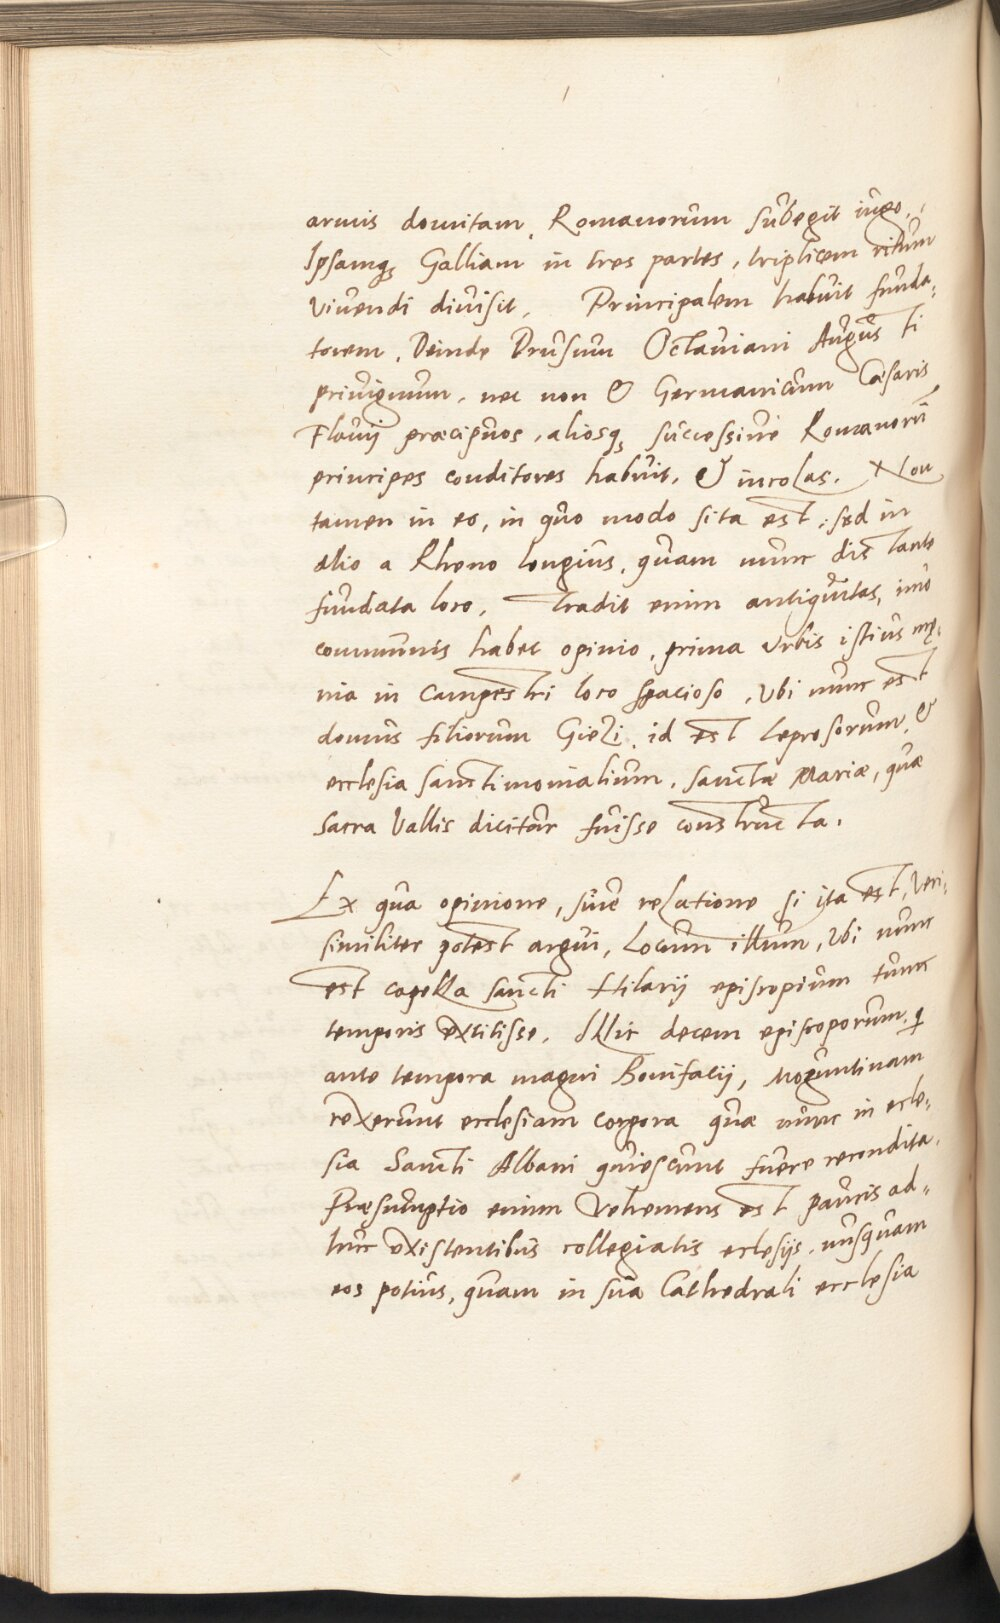 armis domitam, Romanorum subegit iugo,
Ipsamq; Galliam in tres partes, triplicem ritum
viuendi diuisit, Principalem habuit funda-
torem, Deinde Drusum Octauiani Augusti
priuignum, nec non & Germanicum Cæsaris
Flauij præcipuos, aliosq; successiue Romanorū
principes conditores habuit, & incolas. Non
tamen in eo, in quo modo sita est, sed in
alio a Rheno longius, quam nunc distante
fundata loco. Tradit enim antiquitas, imo
communis habet opinio, prima Vrbis istius mę-
nia in Campestri loco spacioso, Vbi nunc est
domus filiorum Giezi, id est Leprosorum, &
ecclesia sanctimonialium, sanctæ Mariæ, quæ
sacra Vallis dicitur fuisse constructa.
Ex qua opinione, siue relatione si ita est, Veri-
similiter potest argui, Locum illum, Vbi nunc
est capella sancti Hilarij episcopium tunc
temporis extitisse. Illic decem episcoporum, q
ante tempora magni Bonifacij, Moguntinam
rexerunt ecclesiam corpora quæ nunc in eccle-
sia Sancti Albani quiescunt fuere recondita.
Præsumptio enim Vehemens est paucis ad-
huc existentibus collegiatis eclesijs, nusquam
eos potius, quam in sua Cathedrali ecclesia